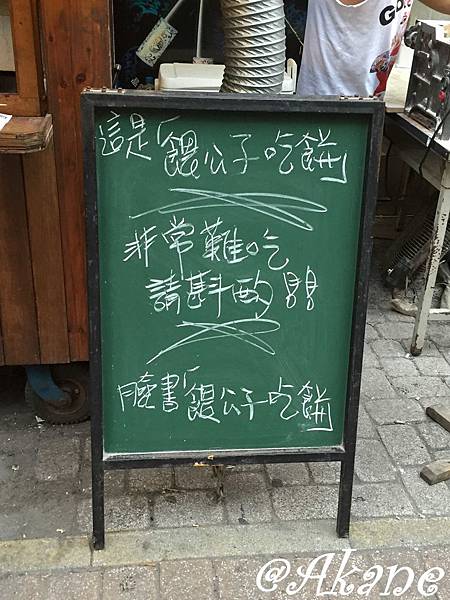 這是「餵公子吃餅」
非常難吃
請斟酌
臉書「餵公子吃餅」
@Akane